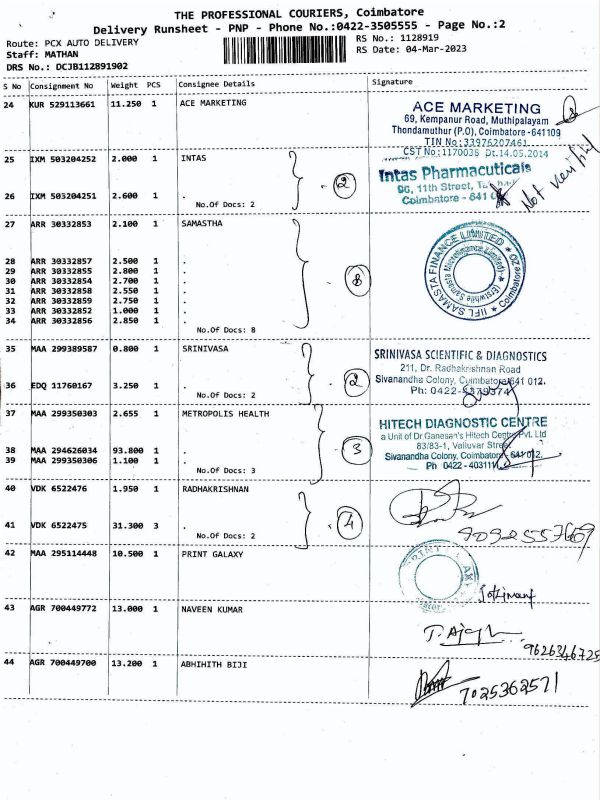 THE PROFESSIONAL COURIERS, Coimbatore
Delivery Runsheet - PNP - Phone No.:0422-3505555 - Page No.:2
Route: PCX AUTO DELIVERY
Staff: MATHAN
DRS No.: DCJB112891902
RS No.: 1128919
RS Date: 04-Mar-2023
S No Consignment No Weight PCS Consignee Details Signature
24 KUR 529113661 11.250 1 ACE MARKETING
ACE MARKETING
69, Kempanur Road, Muthipalayam
Thondamuthur (P.O), Coimbatore -641109
TIN No:33976207461
CST No:1170038 Dt.14.05.2014
25 IXM 503204252 2.000 1 INTAS
26 IXM 503204251 2.600 1 .
No.Of Docs: 2
2
Intas Pharmaceuticals
96, 11th Street,
Coimbatore - 641
Not verified
27 ARR 30332853 2.100 1 SAMASTHA
28 ARR 30332857 2.500 1 .
29 ARR 30332855 2.800 1 .
30 ARR 30332854 2.700 1 .
31 ARR 30332858 2.550 1 .
32 ARR 30332859 2.750 1 .
33 ARR 30332852 1.000 1 .
34 ARR 30332856 2.850 1 .
No.Of Docs: 8
8
IIFL SAMASTA FINANCE LIMITED
Coimbatore
35 MAA 299389587 0.800 1 SRINIVASA
36 EDQ 11760167 3.250 1 .
No.Of Docs: 2
2
SRINIVASA SCIENTIFIC & DIAGNOSTICS
211, Dr. Radhakrishnan Road
Sivanandha Colony, Coimbatore-641 012.
Ph: 0422-4379374
37 MAA 299350303 2.655 1 METROPOLIS HEALTH
38 MAA 294626034 93.800 1 .
39 MAA 299350306 1.100 1 .
No.Of Docs: 3
3
HITECH DIAGNOSTIC CENTRE
a Unit of Dr.Ganesan's Hitech Centre Pvt. Ltd
83/83-1, Valluvar Street
Sivanandha Colony, Coimbatore - 641 012.
Ph 0422 - 403111
40 VDK 6522476 1.950 1 RADHAKRISHNAN
41 VDK 6522475 31.300 3 .
No.Of Docs: 2
4
9092557609
42 MAA 295114448 10.500 1 PRINT GALAXY
43 AGR 700449772 13.000 1 NAVEEN KUMAR
9626346725
44 AGR 700449700 13.200 1 ABHIHITH BIJI
7025362571